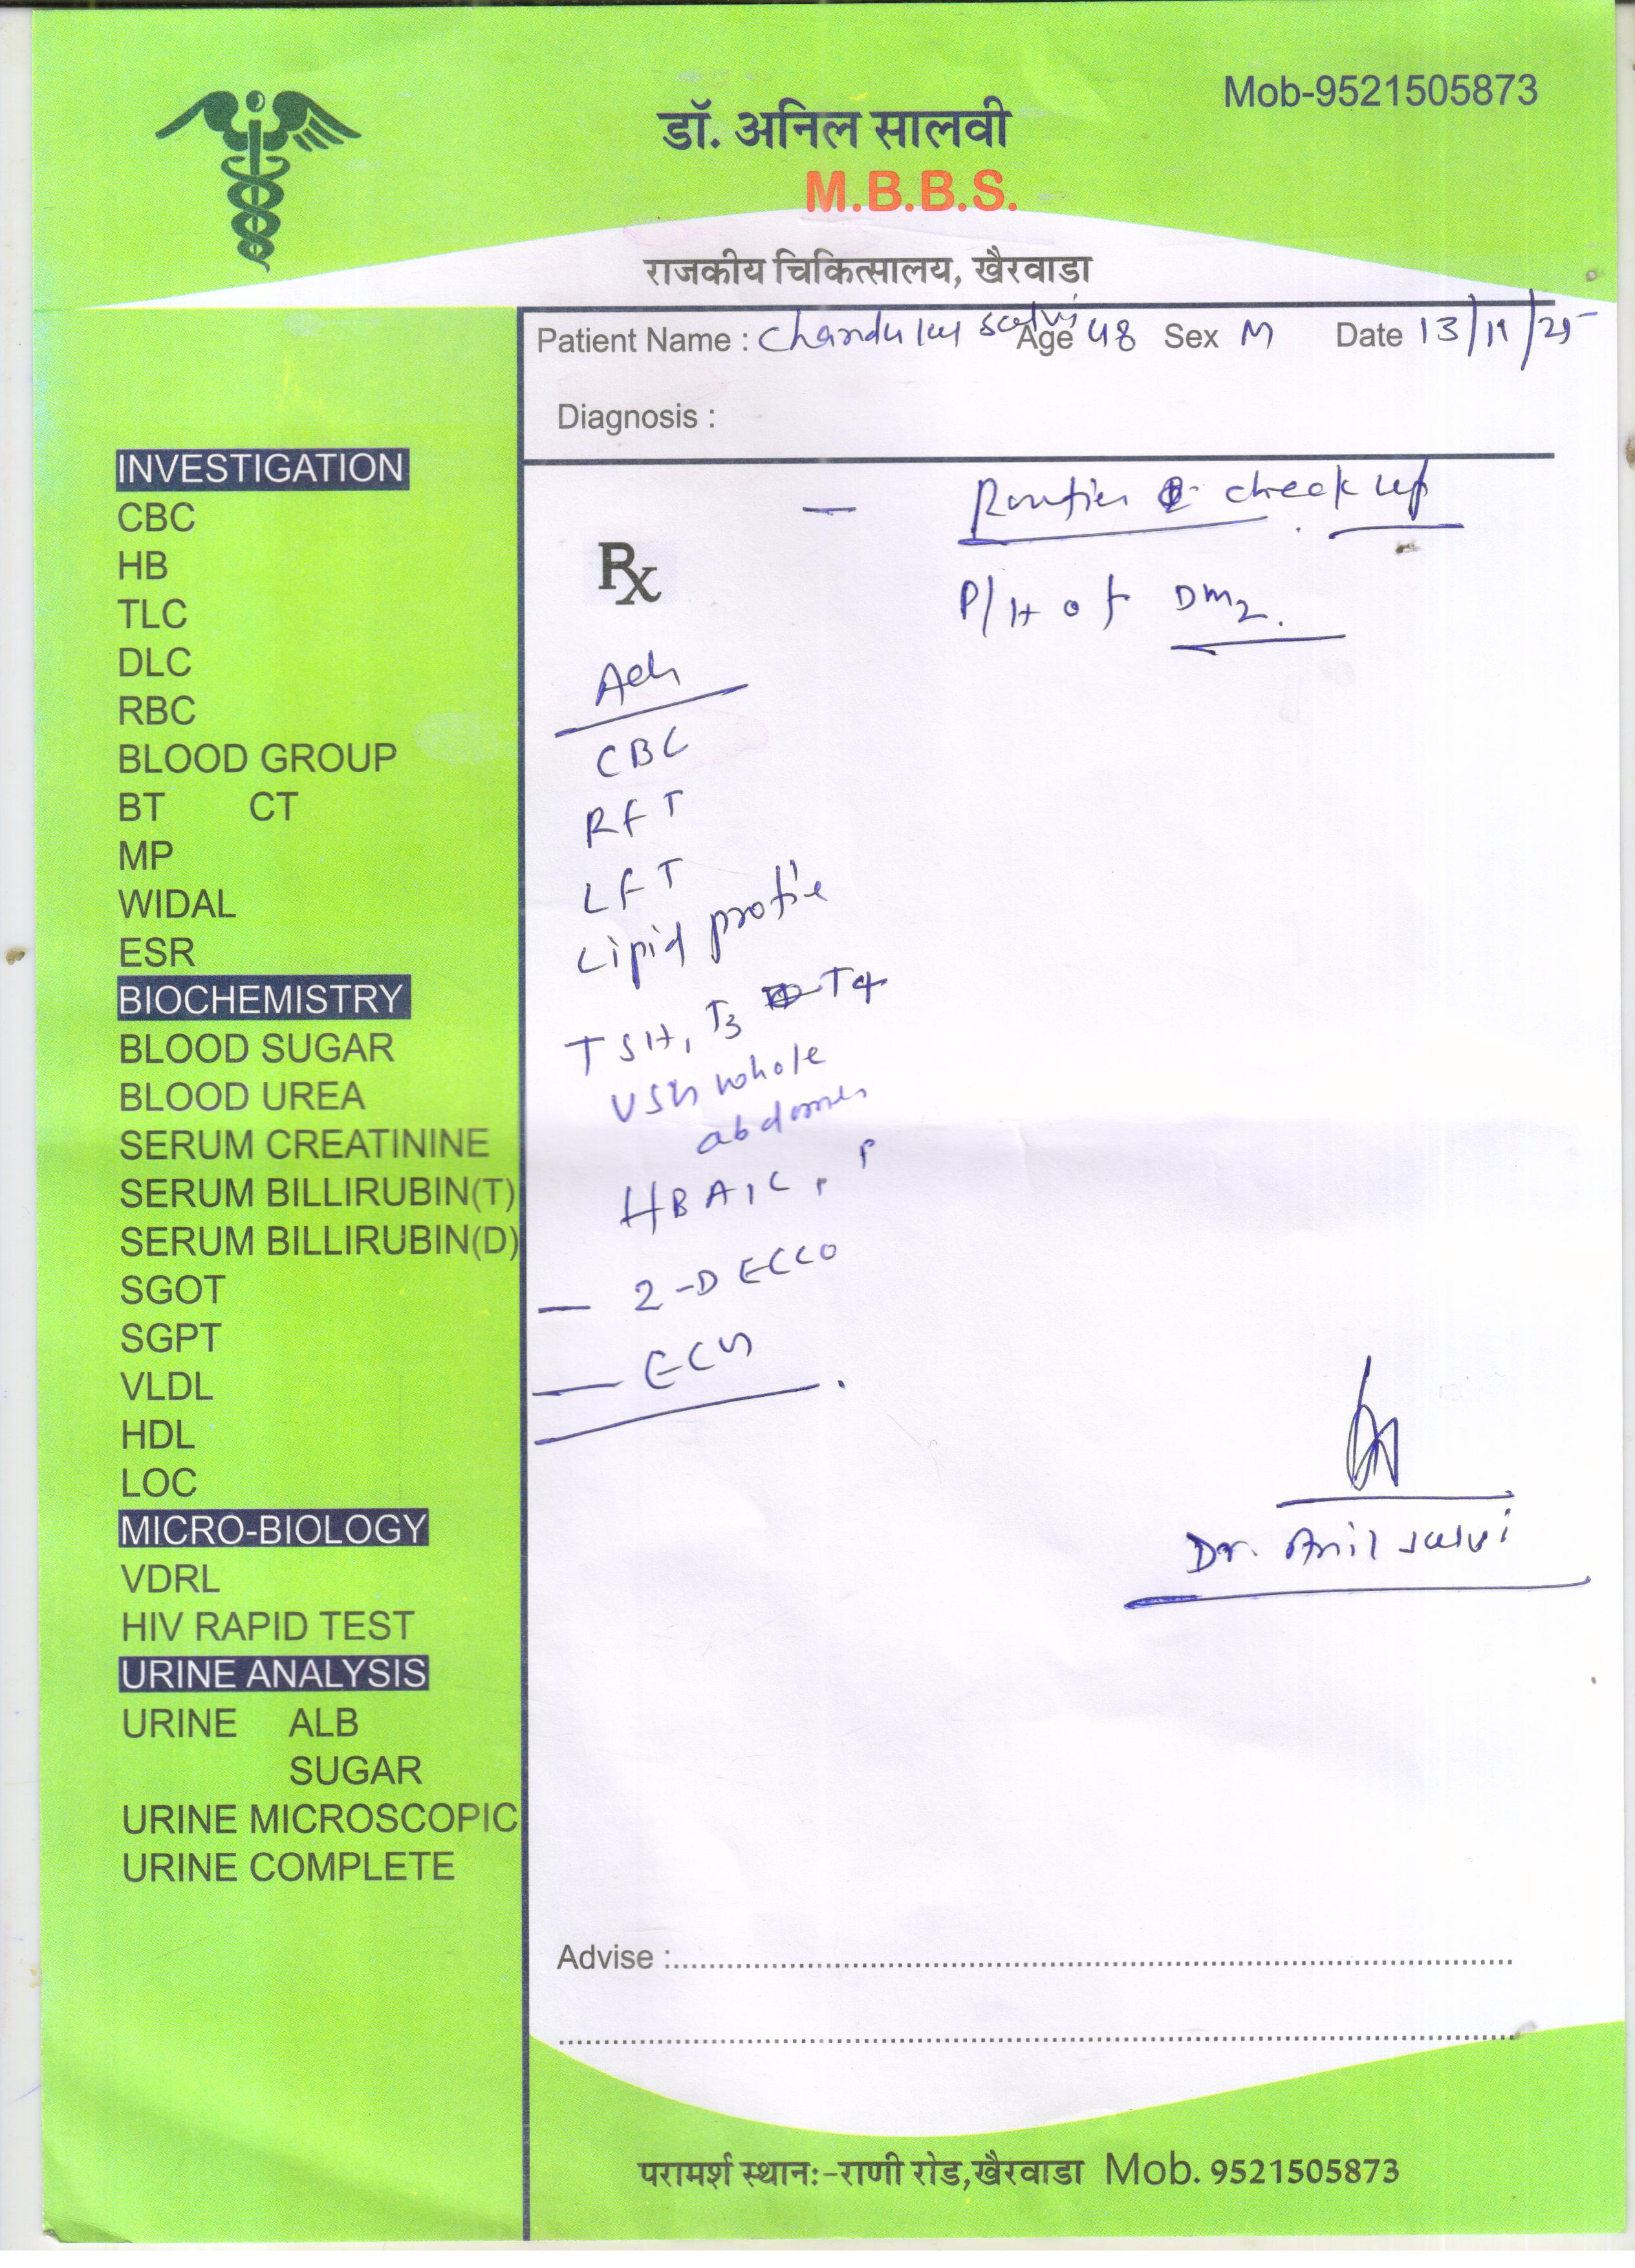 Mob-9521505873
डॉ. अनिल सालवी
M.B.B.S.
राजकीय चिकित्सालय, खैरवाडा
Patient Name : Chandulal Salvi Age 48 Sex M Date 13/11/25
Diagnosis :
— Routien check up
Rx
P/H of DM2.
INVESTIGATION
CBC
HB
TLC
DLC
RBC
BLOOD GROUP
BT CT
MP
WIDAL
ESR
BIOCHEMISTRY
BLOOD SUGAR
BLOOD UREA
SERUM CREATININE
SERUM BILLIRUBIN(T)
SERUM BILLIRUBIN(D)
SGOT
SGPT
VLDL
HDL
LOC
MICRO-BIOLOGY
VDRL
HIV RAPID TEST
URINE ANALYSIS
URINE ALB
SUGAR
URINE MICROSCOPIC
URINE COMPLETE
CBC
RFT
LFT
Lipid profile
TSH, T3 T4
USG whole
abdomen
HBA1C,
— 2-D ECCO
— ECG
Dr. Anil Salvi
Advise :
परामर्श स्थानः-राणी रोड,खैरवाडा Mob. 9521505873